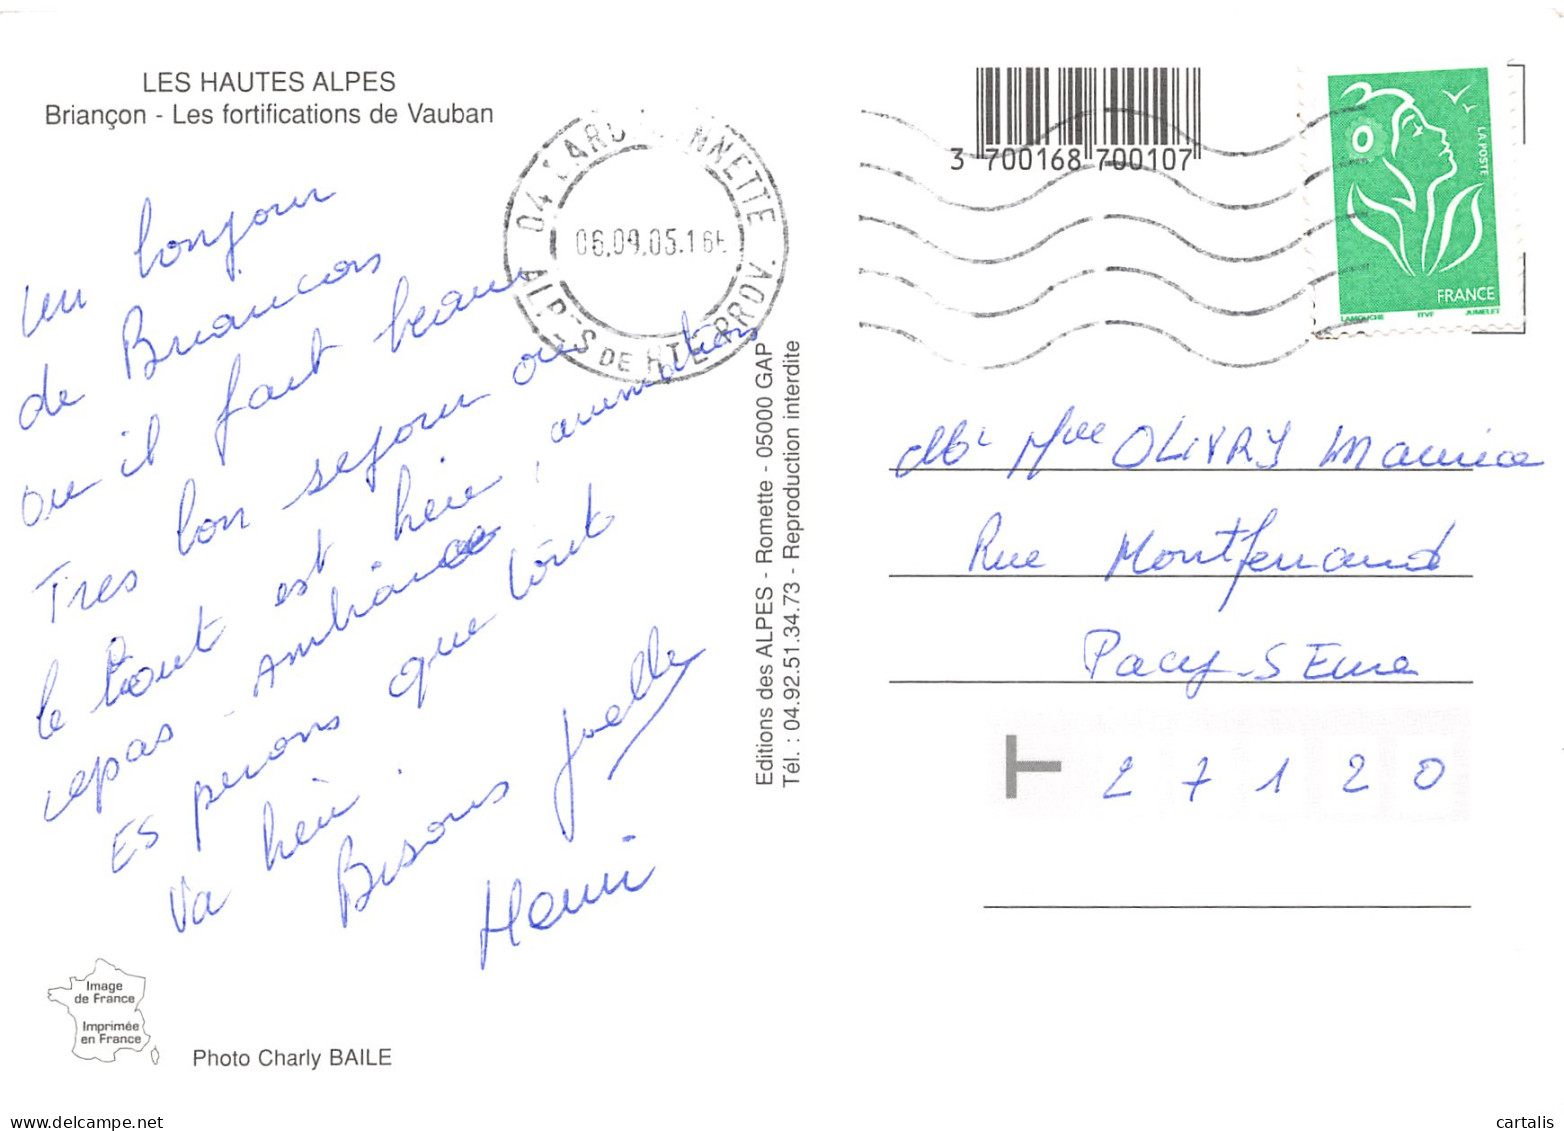 LES HAUTES ALPES
Briançon - Les fortifications de Vauban
un bonjour
de Briancon
ou il fait beau
Tres bon sejour ou
le tout est bien, animation
repas - Ambiance
ES perons que tout
Va bien.
Bisous Joelle
Henri
04 NNETTE
06.09.05.16
ALPES DE HTE PROV.
3 700168 700107
LA POSTE
FRANCE
LAMOUCHE ITVF JUMELET
Editions des ALPES - Romette - 05000 GAP
Tél. : 04.92.51.34.73 - Reproduction interdite
Mme OLIVRY Maurice
Rue Montferrand
Pacy-S Eure
27120
Image
de France
Imprimée
en France
Photo Charly BAILE
cartalis
www.delcampe.net